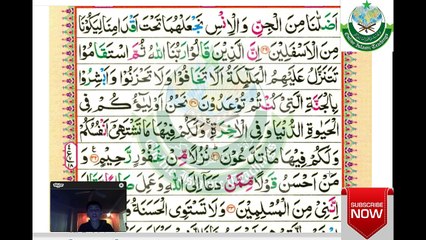 اَضَلّٰنَا مِنَ الْجِنِّ وَ الْاِنْسِ نَجْعَلْهُمَا تَحْتَ اَقْدَامِنَا لِيَكُوْنَا
مِنَ الْاَسْفَلِيْنَ اِنَّ الَّذِيْنَ قَالُوْا رَبُّنَا اللّٰهُ ثُمَّ اسْتَقَامُوْا
تَتَنَزَّلُ عَلَيْهِمُ الْمَلٰٓئِكَةُ اَلَّا تَخَافُوْا وَلَا تَحْزَنُوْا وَ اَبْشِرُوْا
بِالْجَنَّةِ الَّتِيْ كُنْتُمْ تُوْعَدُوْنَ نَحْنُ اَوْلِيٰٓؤُكُمْ فِى
الْحَيٰوةِ الدُّنْيَا وَ فِى الْاٰخِرَةِ وَلَكُمْ فِيْهَا مَا تَشْتَهِيْٓ اَنْفُسُكُمْ
وَلَكُمْ فِيْهَا مَا تَدَّعُوْنَ نُزُلًا مِّنْ غَفُوْرٍ رَّحِيْمٍ وَ
مَنْ اَحْسَنُ قَوْلًا مِّمَّنْ دَعَآ اِلَى اللّٰهِ وَ عَمِلَ
اِنَّنِيْ مِنَ الْمُسْلِمِيْنَ وَلَا تَسْتَوِى الْحَسَنَةُ وَلَا
SUBSCRIBE
NOW